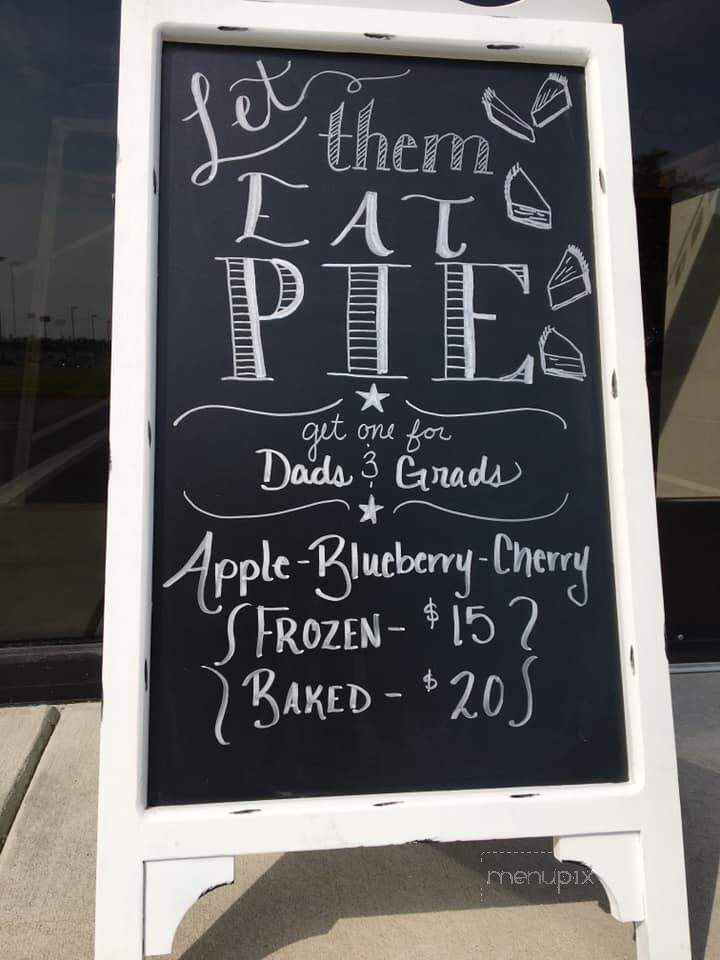 Let them
EAT
PIE
get one for
Dads & Grads
Apple - Blueberry - Cherry
FROZEN - $15
BAKED - $20
menupix